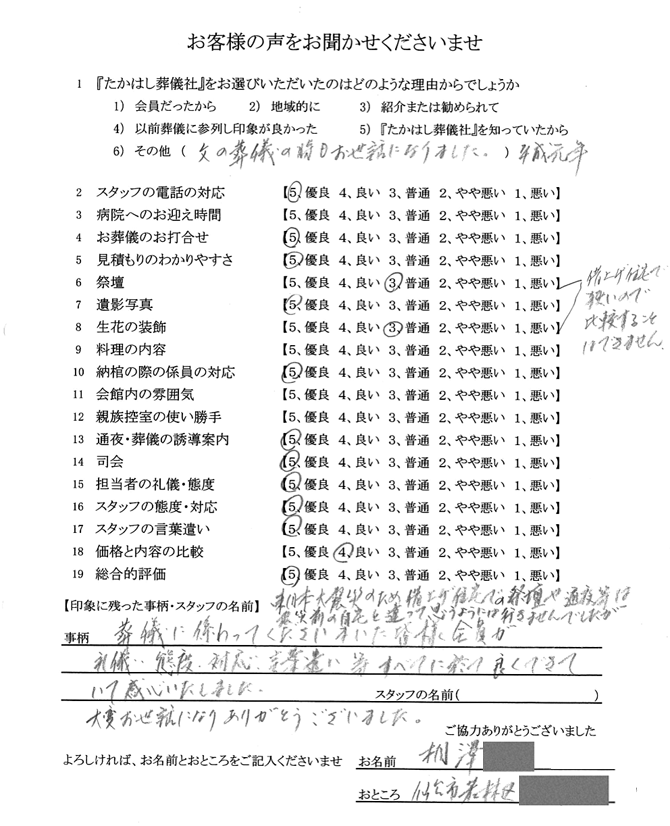 お客様の声をお聞かせくださいませ
1 『たかはし葬儀社』をお選びいただいたのはどのような理由からでしょうか
1) 会員だったから 2) 地域的に 3) 紹介または勧められて
4) 以前葬儀に参列し印象が良かった 5) 『たかはし葬儀社』を知っていたから
6) その他 ( 父の葬儀の時もお世話になりました。) 平成元年
2 スタッフの電話の対応 【5、優良 4、良い 3、普通 2、やや悪い 1、悪い】
3 病院へのお迎え時間 【5、優良 4、良い 3、普通 2、やや悪い 1、悪い】
4 お葬儀のお打合せ 【5、優良 4、良い 3、普通 2、やや悪い 1、悪い】
5 見積もりのわかりやすさ 【5、優良 4、良い 3、普通 2、やや悪い 1、悪い】
6 祭壇 【5、優良 4、良い 3、普通 2、やや悪い 1、悪い】
7 遺影写真 【5、優良 4、良い 3、普通 2、やや悪い 1、悪い】
8 生花の装飾 【5、優良 4、良い 3、普通 2、やや悪い 1、悪い】
借上げ住宅で
狭いので
比較すること
はできません
9 料理の内容 【5、優良 4、良い 3、普通 2、やや悪い 1、悪い】
10 納棺の際の係員の対応 【5、優良 4、良い 3、普通 2、やや悪い 1、悪い】
11 会館内の雰囲気 【5、優良 4、良い 3、普通 2、やや悪い 1、悪い】
12 親族控室の使い勝手 【5、優良 4、良い 3、普通 2、やや悪い 1、悪い】
13 通夜・葬儀の誘導案内 【5、優良 4、良い 3、普通 2、やや悪い 1、悪い】
14 司会 【5、優良 4、良い 3、普通 2、やや悪い 1、悪い】
15 担当者の礼儀・態度 【5、優良 4、良い 3、普通 2、やや悪い 1、悪い】
16 スタッフの態度・対応 【5、優良 4、良い 3、普通 2、やや悪い 1、悪い】
17 スタッフの言葉遣い 【5、優良 4、良い 3、普通 2、やや悪い 1、悪い】
18 価格と内容の比較 【5、優良 4、良い 3、普通 2、やや悪い 1、悪い】
19 総合的評価 【5、優良 4、良い 3、普通 2、やや悪い 1、悪い】
【印象に残った事柄・スタッフの名前】
東日本大震災のため借上げ住宅での祭壇や通夜等は
震災前の自宅と違って思うようには行きませんでしたが
事柄 葬儀に係わってくださいました皆様全員が
礼儀、態度、対応、言葉遣い等すべてに於て良くできて
いて感心いたしました。 スタッフの名前( )
大変お世話になりありがとうございました。
ご協力ありがとうございました
よろしければ、お名前とおところをご記入くださいませ お名前 相澤
おところ 仙台市若林区